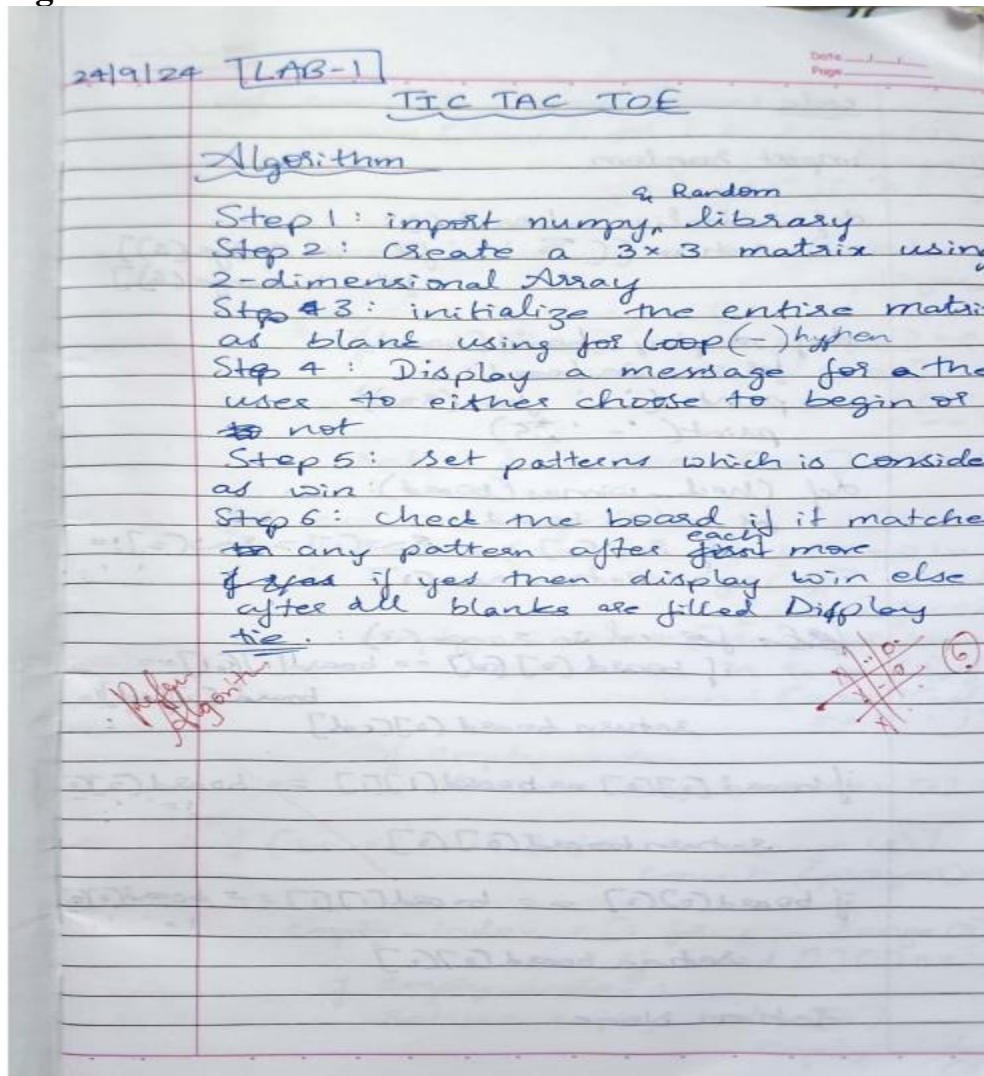 24/9/24 LAB-1
Date
Page
TIC TAC TOE
Algorithm
& Random
Step 1: import numpy library
Step 2: Create a 3x3 matrix using
2-dimensional Array
Step 3: initialize the entire matri
as blank using for loop (-) hyphen
Step 4: Display a message for the
user to either choose to begin or
not
Step 5: Set patterns which is conside
as win
Step 6: check the board if it matche
any pattern after each move
if yes then display win else
after all blanks are filled Display
tie.
Algorithm
6